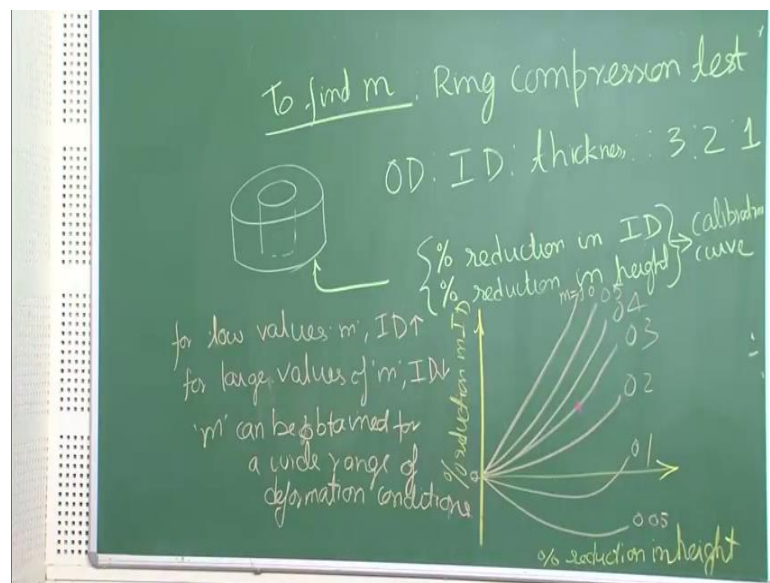 To find m : Ring compression test
OD : ID : thicknes : 3 : 2 : 1
% reduction in ID
% reduction in height
calibration curve
for low values m', ID↑
for large values of 'm', ID↓
'm' can be obtained for
a wide range of
deformation conditions
% reduction in ID
m=1.0
0.5
0.4
0.3
0.2
0.1
0.05
0
% reduction in height